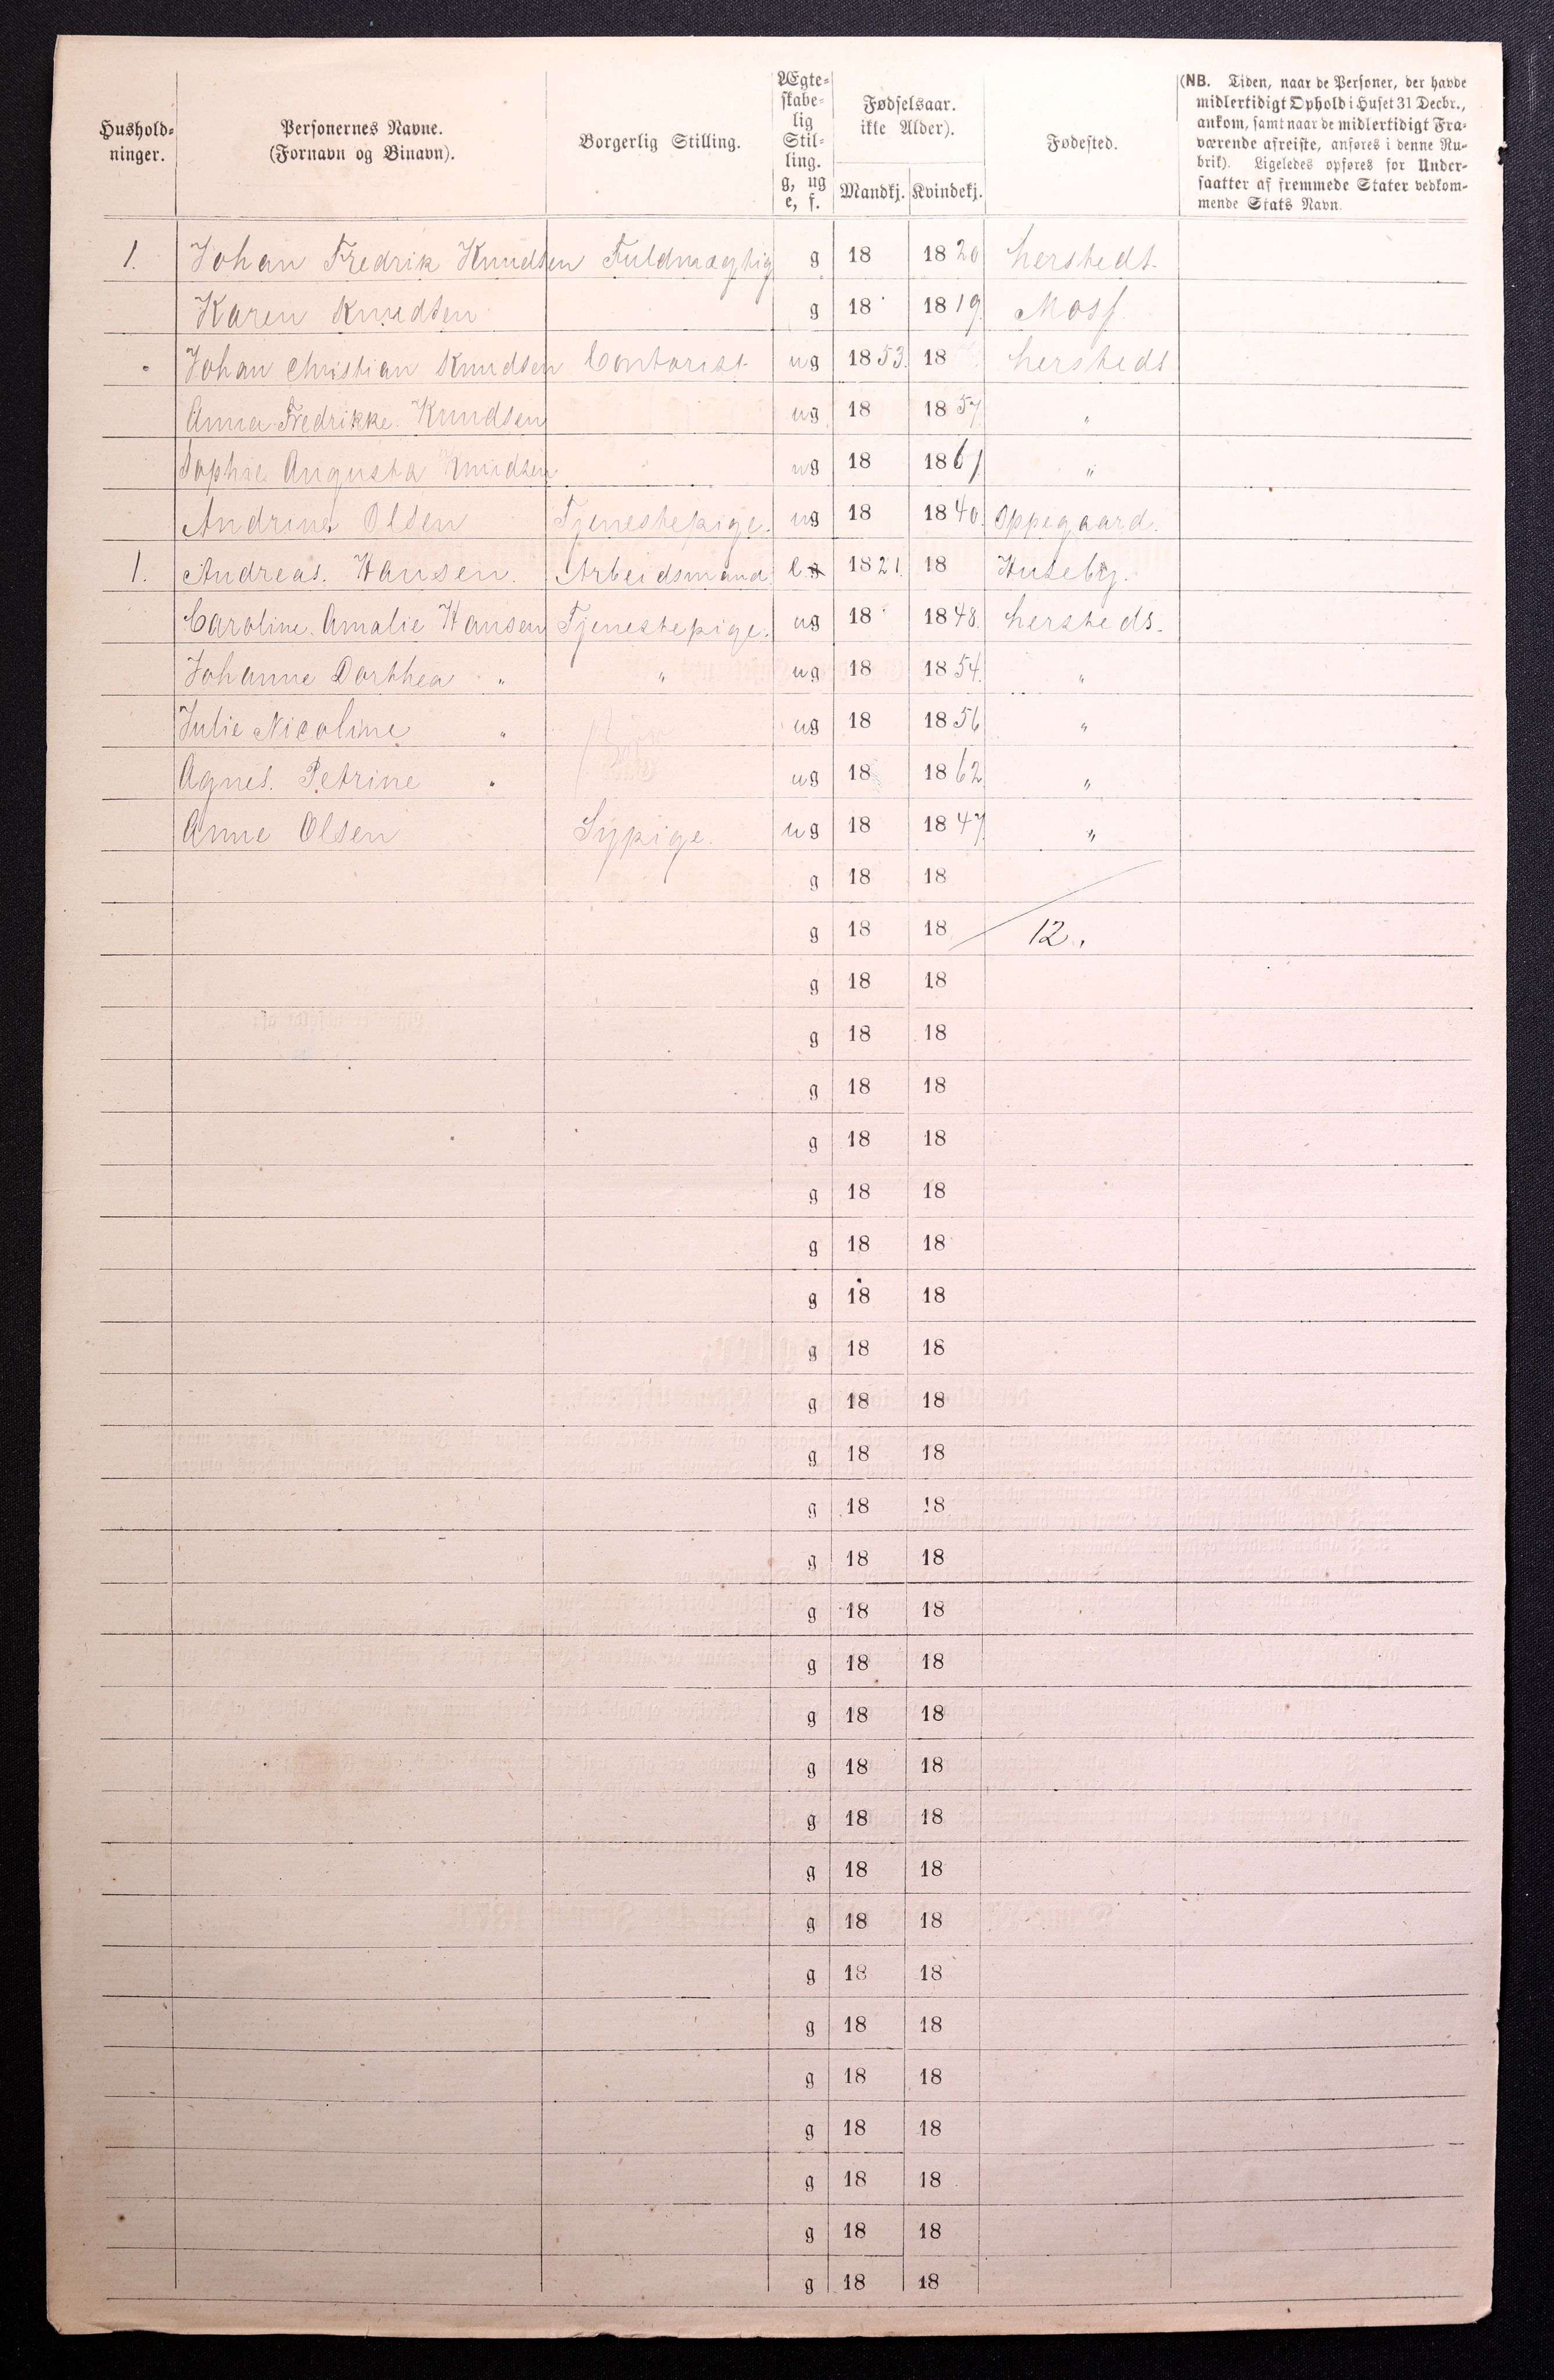 Hushold-
ninger.
Personernes Navne.
(Fornavn og Binavn).
Borgerlig Stilling.
Ægte-
skabe-
lig
Stil-
ling.
g, ug
e, f.
Fødselsaar.
ikke Alder).
Mandkj. Kvindekj.
Fødested.
(NB. Tiden, naar de Personer, der havde
midlertidigt Ophold i Huset 31 Decbr.,
ankom, samt naar de midlertidigt Fra-
værende afreiste, anføres i denne Ru-
brik). Ligeledes opføres for Under-
saatter af fremmede Stater vedkom-
mende Stats Navn.
1. Johan Fredrik Knudsen Fuldmægtig g 18 1820 hersteds.
Karen Knudsen g 18 1819 Moss.
Johan Christian Knudsen Contorist ug 1853. 18 hersteds
Anna Fredrikke Knudsen ug 18 1857 "
Sophie Augusta Knudsen ug 18 1861 "
Andrine Olsen Tjenestepige. ug 18 1840. Oppegaard.
1. Andreas. Hansen. Arbeidsmand e 1821. 18 Huseby.
Caroline. Amalie Hansen Tjenestepige. ug 18 1848. hersteds.
Johanne Dorthea " " ug 18 1854. "
Julie Nicoline " ug 18 1856 "
Agnes. Petrine " ug 18 1862 "
Anne Olsen Sypige. ug 18 1847 "
g 18 18
g 18 18 12.
g 18 18
g 18 18
g 18 18
g 18 18
g 18 18
g 18 18
g 18 18
g 18 18
g 18 18
g 18 18
g 18 18
g 18 18
g 18 18
g 18 18
g 18 18
g 18 18
g 18 18
g 18 18
g 18 18
g 18 18
g 18 18
g 18 18
g 18 18
g 18 18
g 18 18
g 18 18